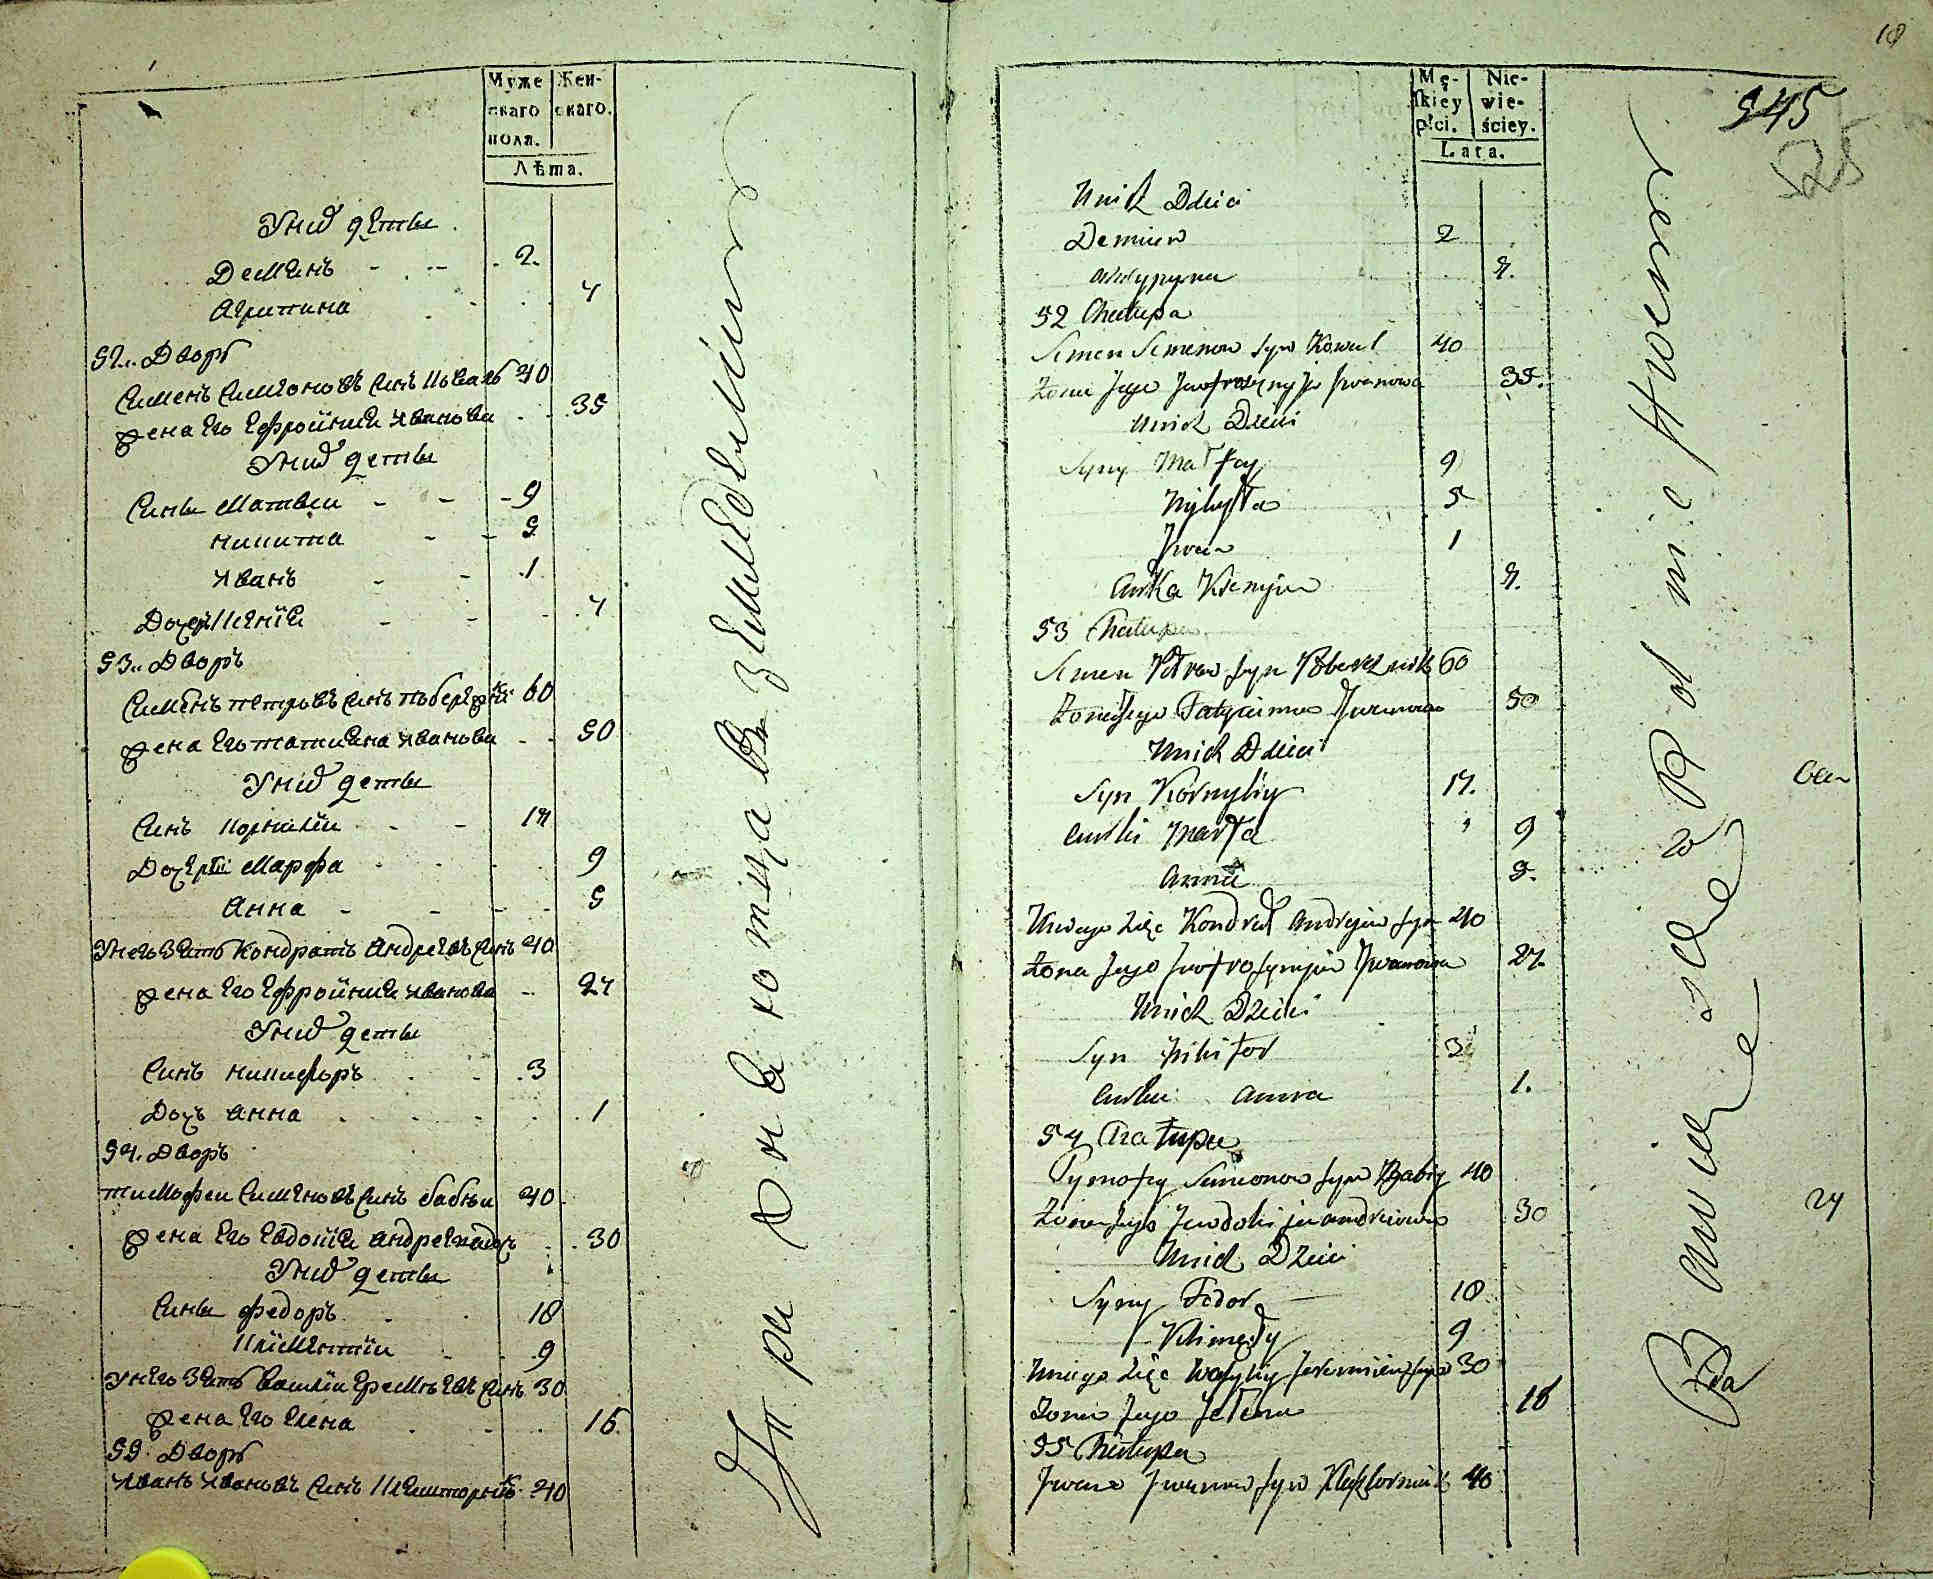 Муже скаго пола.
Жен- скаго.
Лѣта.
Унид дети
Демѣянъ 2.
Агрипина 4
52. Дворъ
Сименъ Симіоновъ синъ Коваль 40
жена Его Ефросинія Иванова 35
Унид дети
Сины Матвеи 9
Никита 5
Иванъ 1
Дочерь Ксенія 4
53. Дворъ
Сименъ Петровъ синъ Побережник 60
жена Его Татиана Иванова 50
Унид дети
Синъ Корнилии 17
Дочери Марфа 9
Анна 5
Унего Зять Кондратъ Андреевъ синъ 40
жена Его Ефросинія Иванова 27
Унид дети
Синъ Никифоръ 3
Дочь Анна 1
54. Дворъ
Тимофеи Сименовъ синъ Бабѣи 40
жена Его Евдокія Андреева 30
Унид дети
Сины Федоръ 18
Климентіи 9
Унего Зять Василіи Еремѣевъ синъ 30
жена Его Елена 18
55. Дворъ
Иванъ Ивановъ синъ 40
18
545
525
Mę- skiey płci.
Nie- wieściey.
Lata.
Unich Dzieci
Demian 2
4.
52 Chałupa
Semen Semenow syn Kowal 40
Żona Jego Jwanowa 35.
Unich Dzieci
Syny Matfey 9
Nykyta 5
Jwan 1
Curka Ksenyia 4.
53 Chałupa
Semen Petrow syn Pobereżnik 60
Żona Jego Tatyanna Jwanowa 50
Unich Dzieci
Syn Kornyliy 17.
Curki Marta 9
Anna 5.
Unego Zięc Kondrat Andrejew syn 40
Żona Jego Jwanowa 27.
Unich Dzieci
Syn Nikifor 3
Curka Anna 1.
54 Chałupa
Tymofiy Simionow syn Babiy 40
Żona Jego Jewdokija Andriiowa 30
Unich Dzieci
Syny Fedor 18
Klimęty 9
Uniego Zięc Wasyliy Jeremiew syn 30
Żona Jego Jelena 18
55 Chałupa
Jwan Jwanow syn 40
24